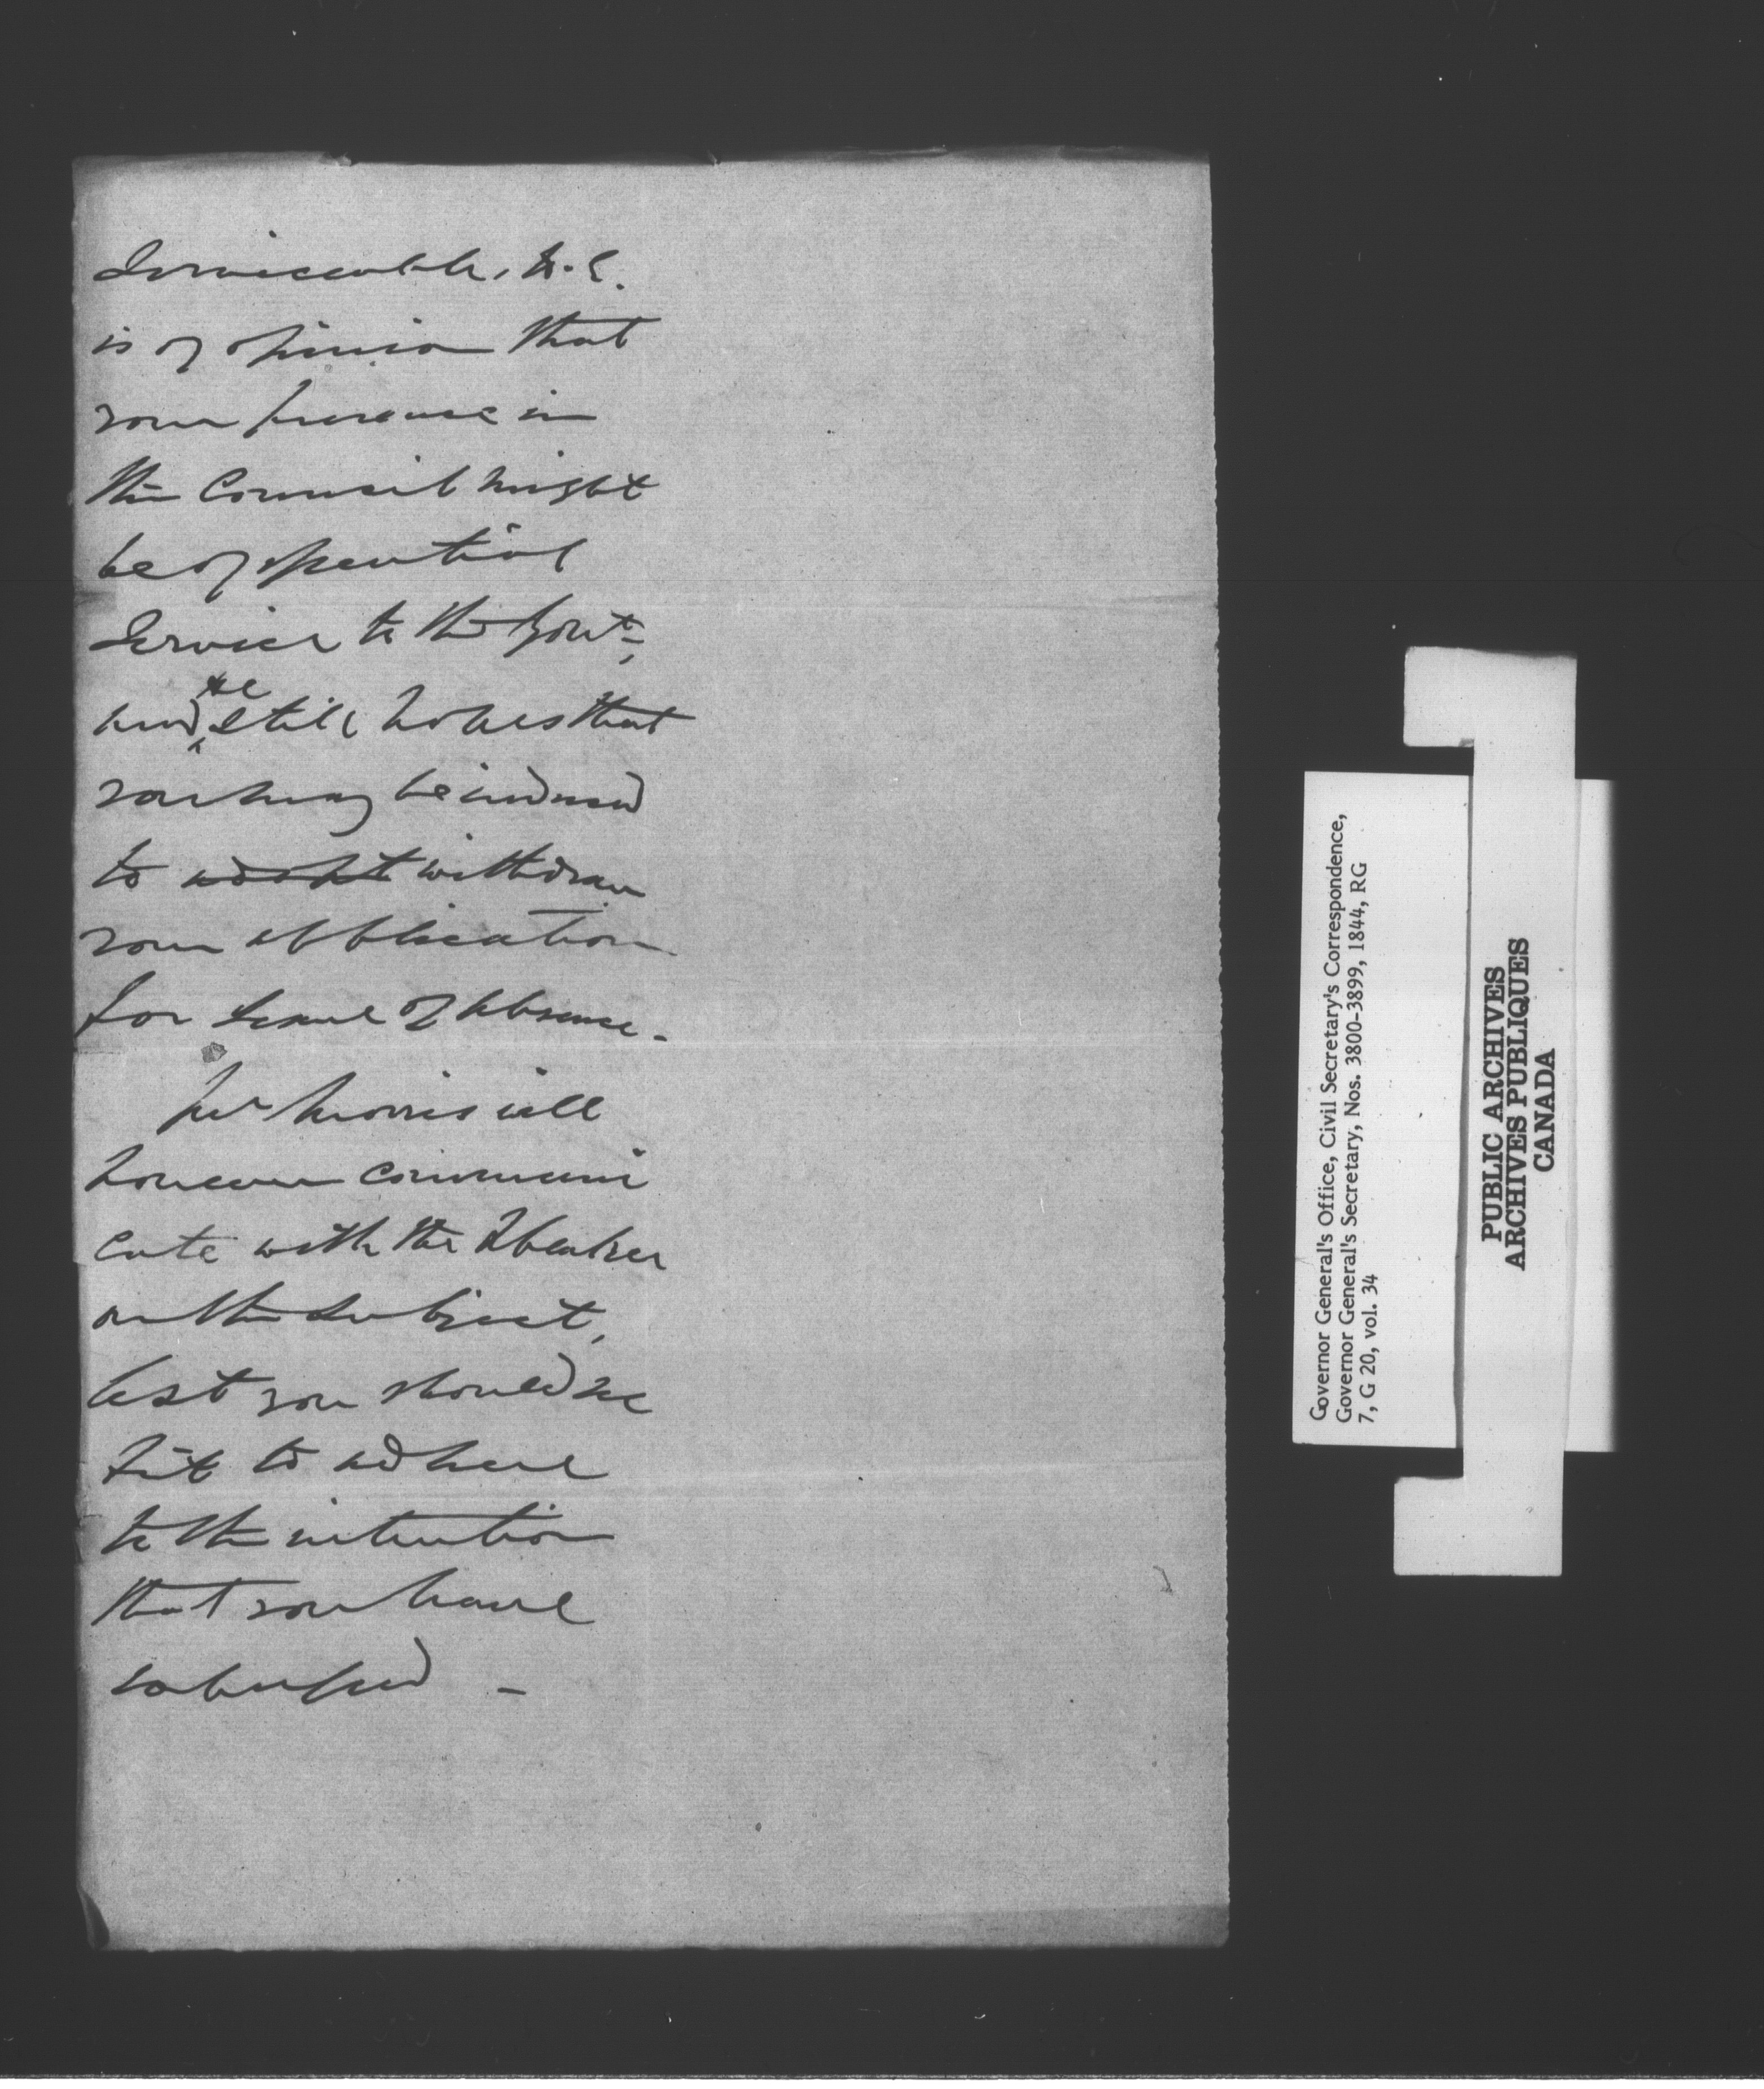 Serviceable, H.E.
is of opinion that
your presence in
the Council might
be of essential
Service to the Govt.,
and he still hopes that
you may be induced
to adopt withdraw
your application
for Leave of absence.-
Mr Morris will
however communi
cate with the Speaker
on the Subject,
lest you should see
fit to adhere
to the intention
that you have
expressed -
Governor General's Office, Civil Secretary's Correspondence,
Governor General's Secretary, Nos. 3800-3899, 1844, RG
7, G 20, vol. 34
PUBLIC ARCHIVES
ARCHIVES PUBLIQUES
CANADA